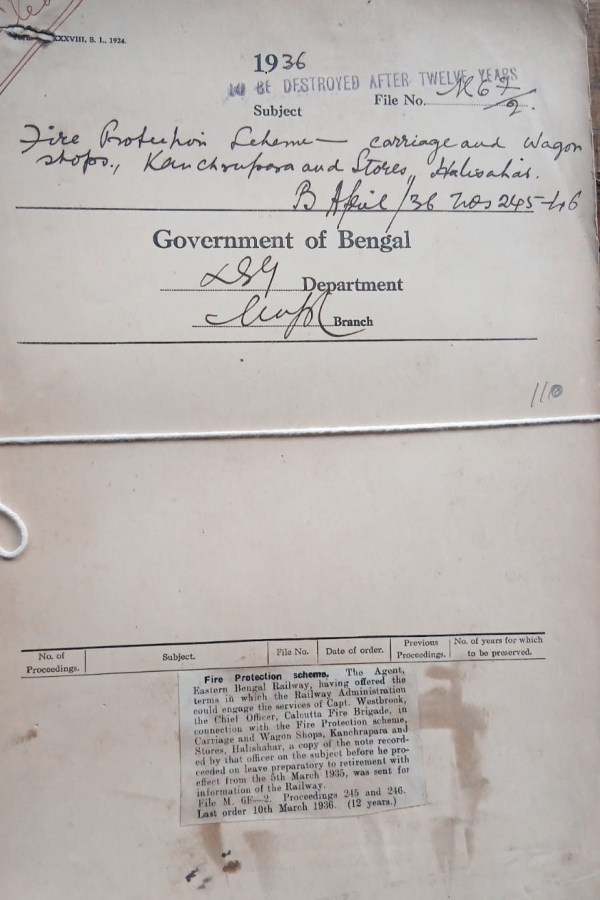 XXXVIII, S. I., 1924.
1936
TO BE DESTROYED AFTER TWELVE YEARS
Subject File No. M 6F/2.
Fire Protection Scheme — carriage and Wagon
shops, Kanchrapara and Stores, Halisahar.
B April/36 nos 245-46
Government of Bengal
LSG Department
Branch
110
No. of Proceedings. Subject. File No. Date of order. Previous Proceedings. No. of years for which to be preserved.
Fire Protection scheme. The Agent,
Eastern Bengal Railway, having offered the
terms in which the Railway Administration
could engage the services of Capt. Westbrook,
the Chief Officer, Calcutta Fire Brigade, in
connection with the Fire Protection scheme,
Carriage and Wagon Shops, Kanchrapara and
Stores, Halishahar, a copy of the note record-
ed by that officer on the subject before he pro-
ceeded on leave preparatory to retirement with
effect from the 5th March 1935, was sent for
information of the Railway.
File M. 6F—2. Proceedings 245 and 246.
Last order 10th March 1936. (12 years.)